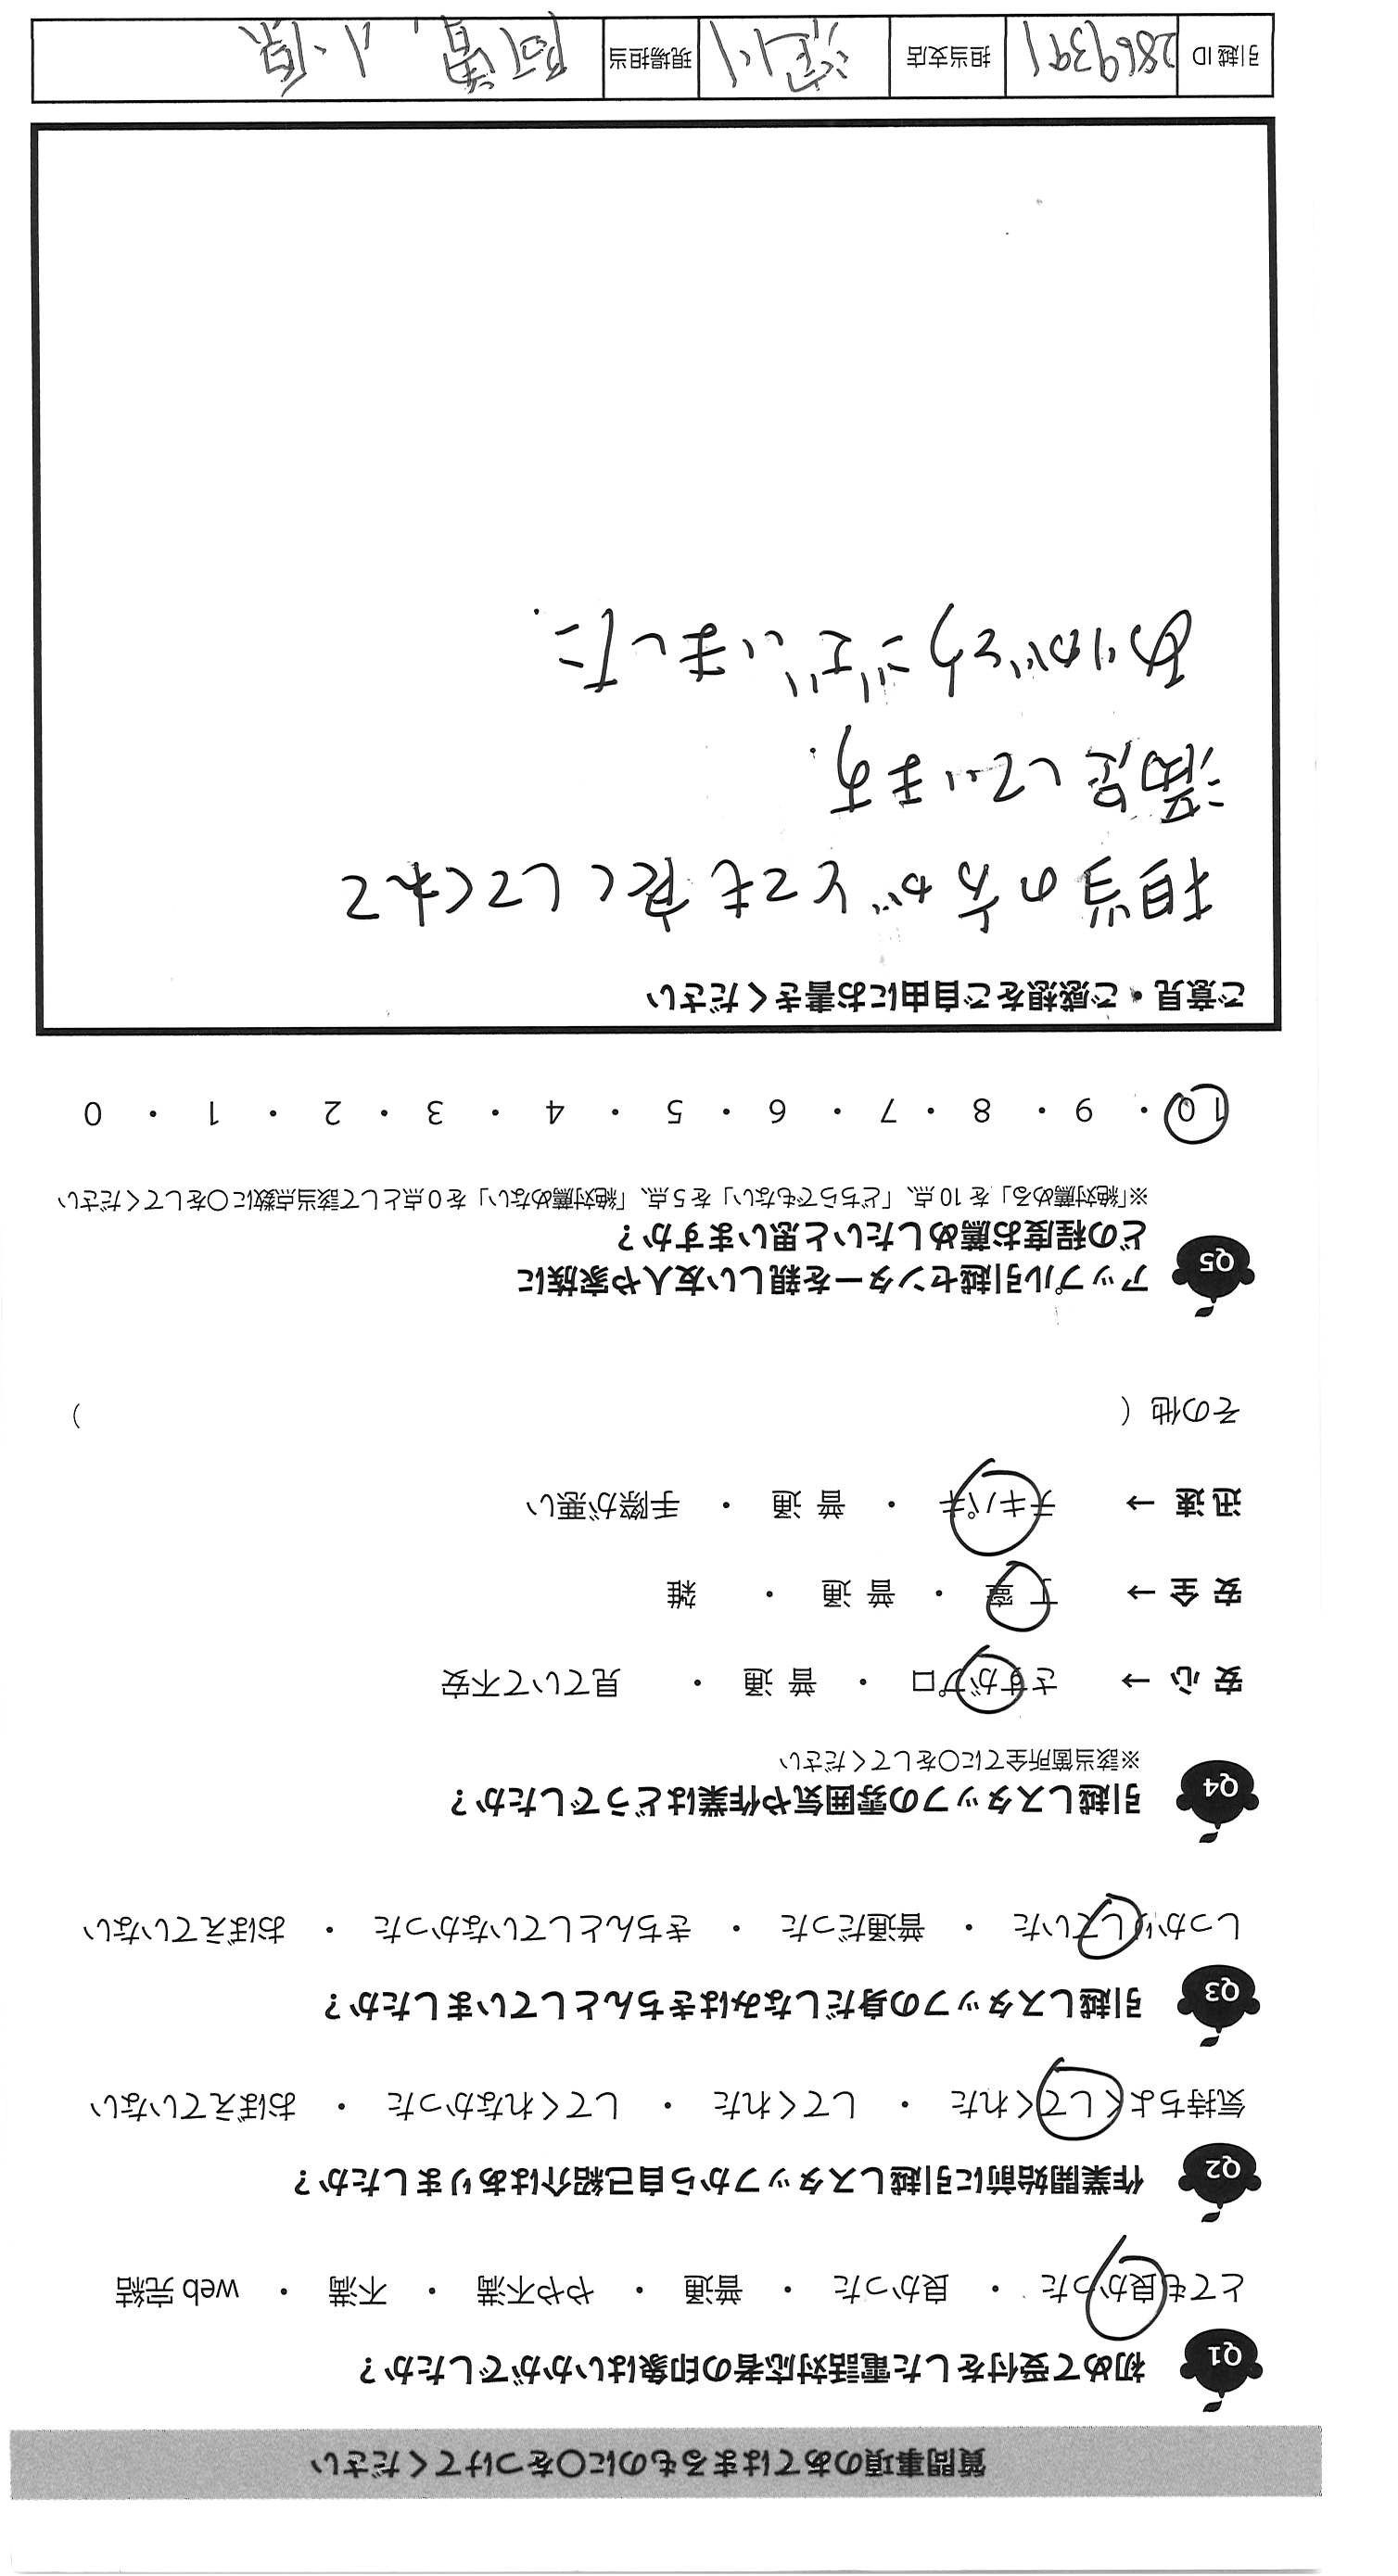 質問事項のあてはまるものに○をつけてください
Q1 初めて受付をした電話対応者の印象はいかがでしたか？
とても良かった ・ 良かった ・ 普通 ・ やや不満 ・ 不満 ・ web 完結
Q2 作業開始前に引越しスタッフから自己紹介はありましたか？
気持ちよくしてくれた ・ してくれた ・ してくれなかった ・ おぼえていない
Q3 引越しスタッフの身だしなみはきちんとしていましたか？
しっかりしていた ・ 普通だった ・ きちんとしていなかった ・ おぼえていない
Q4 引越しスタッフの雰囲気や作業はどうでしたか？
※該当箇所全てに○をしてください
安 心 → さすがプロ ・ 普 通 ・ 見ていて不安
安 全 → 丁 寧 ・ 普 通 ・ 雑
迅 速 → テキパキ ・ 普 通 ・ 手際が悪い
その他（ ）
Q5 アップル引越センターを親しい友人や家族に
どの程度お薦めしたいと思いますか？
※「絶対薦める」を 10 点、「どちらでもない」を 5 点、「絶対薦めない」を 0 点として該当点数に○をしてください
10 ・ 9 ・ 8 ・ 7 ・ 6 ・ 5 ・ 4 ・ 3 ・ 2 ・ 1 ・ 0
ご意見・ご感想をご自由にお書きください
担当の方がとても良くしてくれて
満足しています.
ありがとうございました.
引越 ID 2869391 担当支店 現場担当